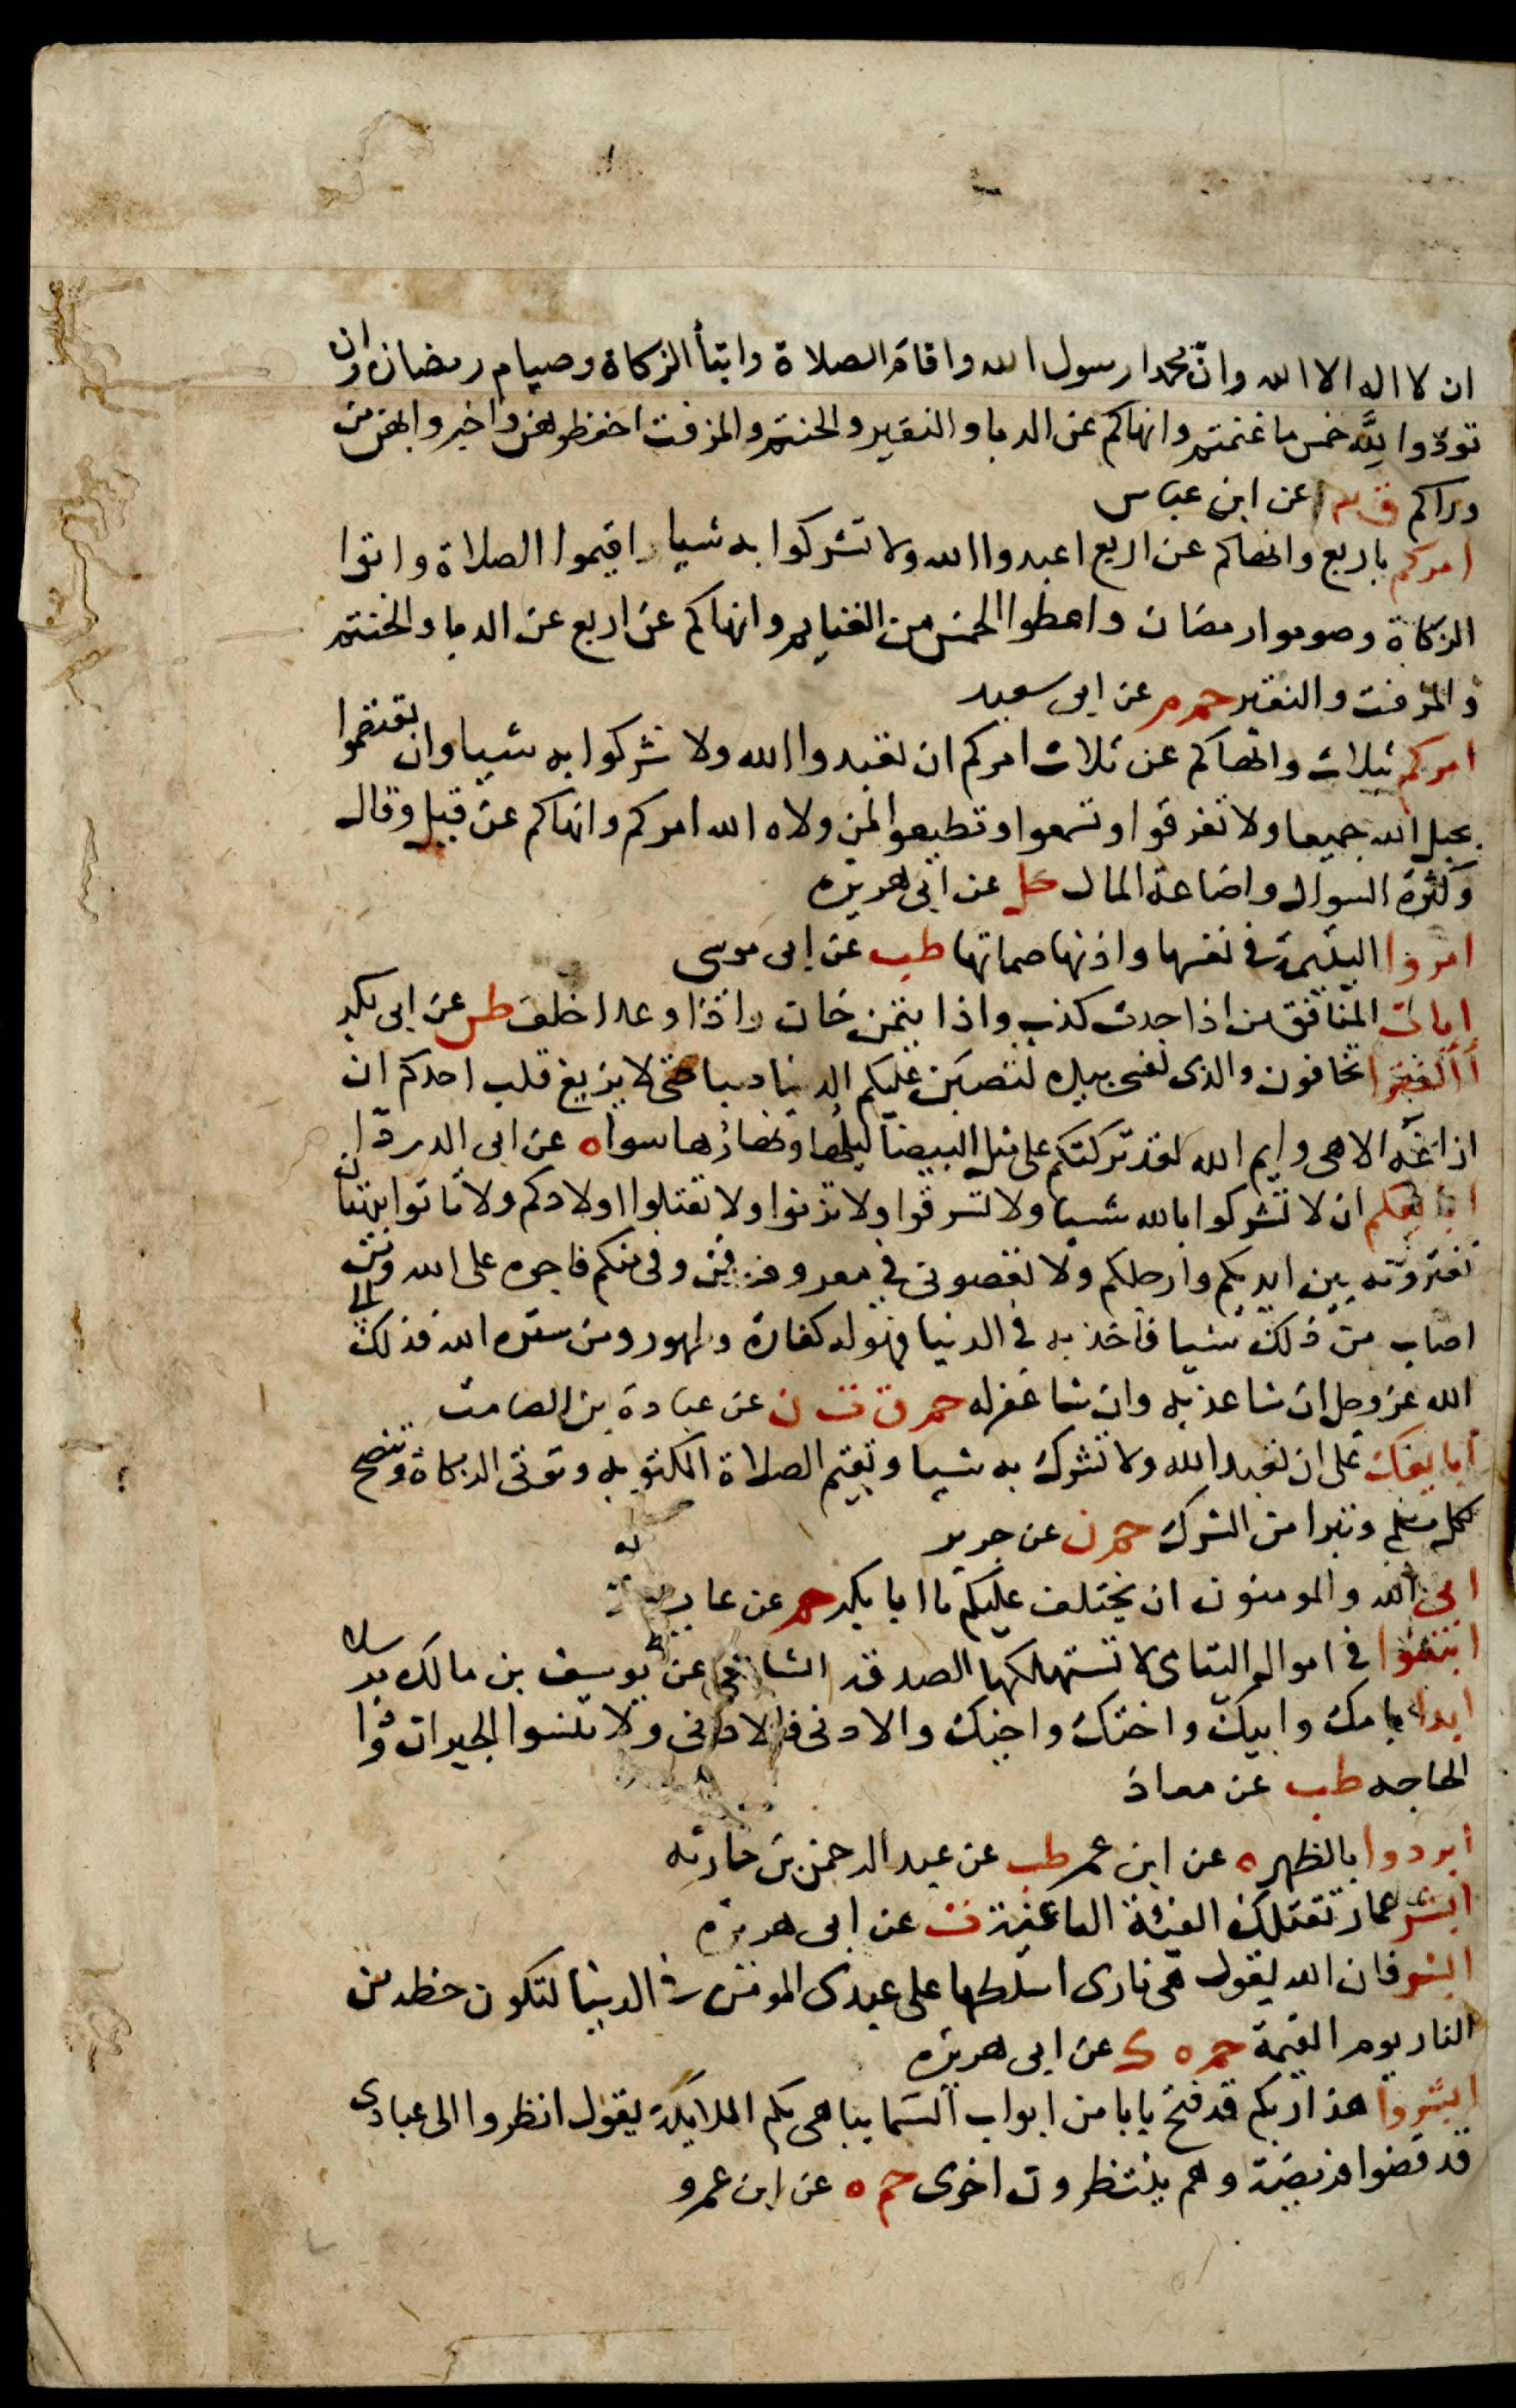 ان لا اله الا الله وانّ محمدا رسول الله واقام الصلاة وايتأ الزكاة وصيام رمضان وان
تودّوا لِلَّه خمس ما غنمتم وانهاكم عن الدبا والنقير والحنتم والمزفت احفظوهن واخبروا بهن من
وراكم ق عن ابن عباس
امركم باربع وانهاكم عن اربع اعبدوا الله ولا تشركوا به شيا واقيموا الصلاة واتوا
الزكاة وصوموا رمضان واعطوا الخمس من الغنايم وانهاكم عن اربع عن الدبا والحنتم
والمزفت والنقير حم م عن ابى سعيد
امركم بثلاث وانهاكم عن ثلاث امركم ان تعبدوا الله ولا تشركوا به شيا وان تعتصموا
بحبل الله جميعا ولا تفرقوا وتسمعوا وتطيعوا لمن ولاه الله امركم وانهاكم عن قيل وقال
وكثرة السوال واضاعة المال حل عن ابى هريره
امروا اليتيمة في نفسها واذنها صماتها طب عن ابى موسى
ايات المنافق من اذا حدث كذب واذا يتمن خان واذا وعد اخلف طس عن ابى بكر
أألفقر تخافون والذى نفسى بيده لتصبن عليكم الدنيا صبا حتى لا يزيغ قلب احدكم ان
ازاغه الا هى وايم الله لقد تركتكم على مثل البيضا ليلها ونهارها سوا ه عن ابى الدردا
ابايعكم ان لا تشركوا بالله شيا ولا تسرقوا ولا تزنوا ولا تقتلوا اولادكم ولا تاتوا ببهتان
تفترونه بين ايديكم وارجلكم ولا تعصونى في معروف فمن وفى منكم فاجره على الله ومن
اصاب من ذلك شيا فاخذ به في الدنيا فهو له كفارة وطهور ومن ستره الله فذلك الى
الله عز وجل ان شا عذبه وان شا غفر له حم ق ت ن عن عبادة بن الصامت
أبايعك على ان تعبد الله ولا تشرك به شيا وتقيم الصلاة المكتوبه وتوتى الزكاة وتنصح
لكل مسلم وتبرا من الشرك حم ن عن جرير
ابى الله والمومنون ان يختلف عليك يا ابا بكر حم عن عايشة
ابتغوا في اموال اليتامى لا تستهلكها الصدقه الشافعى عن يوسف بن ماهك مرسلا
ابدا بامك وابيك واختك واخيك والادنى فالادنى ولا تنسوا الجيران وذا
الحاجه طب عن معاذ
أبردوا بالظهر ه عن ابن عمر طب عن عبد الرحمن بن حارثه
ابشر عمار تقتلك الفئة الباغية ت عن ابى هريره
ابشر فان الله يقول هى نارى اسلطها على عبدى المومن في الدنيا لتكون حظه من
النار يوم القيمة حم ه ك عن ابى هريره
ابشروا هذا ربكم قد فتح بابا من ابواب السما يباهى بكم الملايكة يقول انظروا الى عبادى
قد قضوا فريضة وهم ينتظرون اخرى حم ه عن ابن عمرو